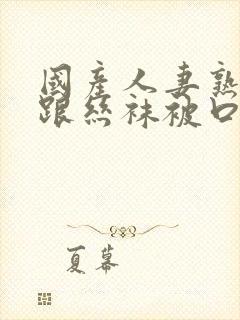 國產人妻熟
跟絲袜被口
夏幕